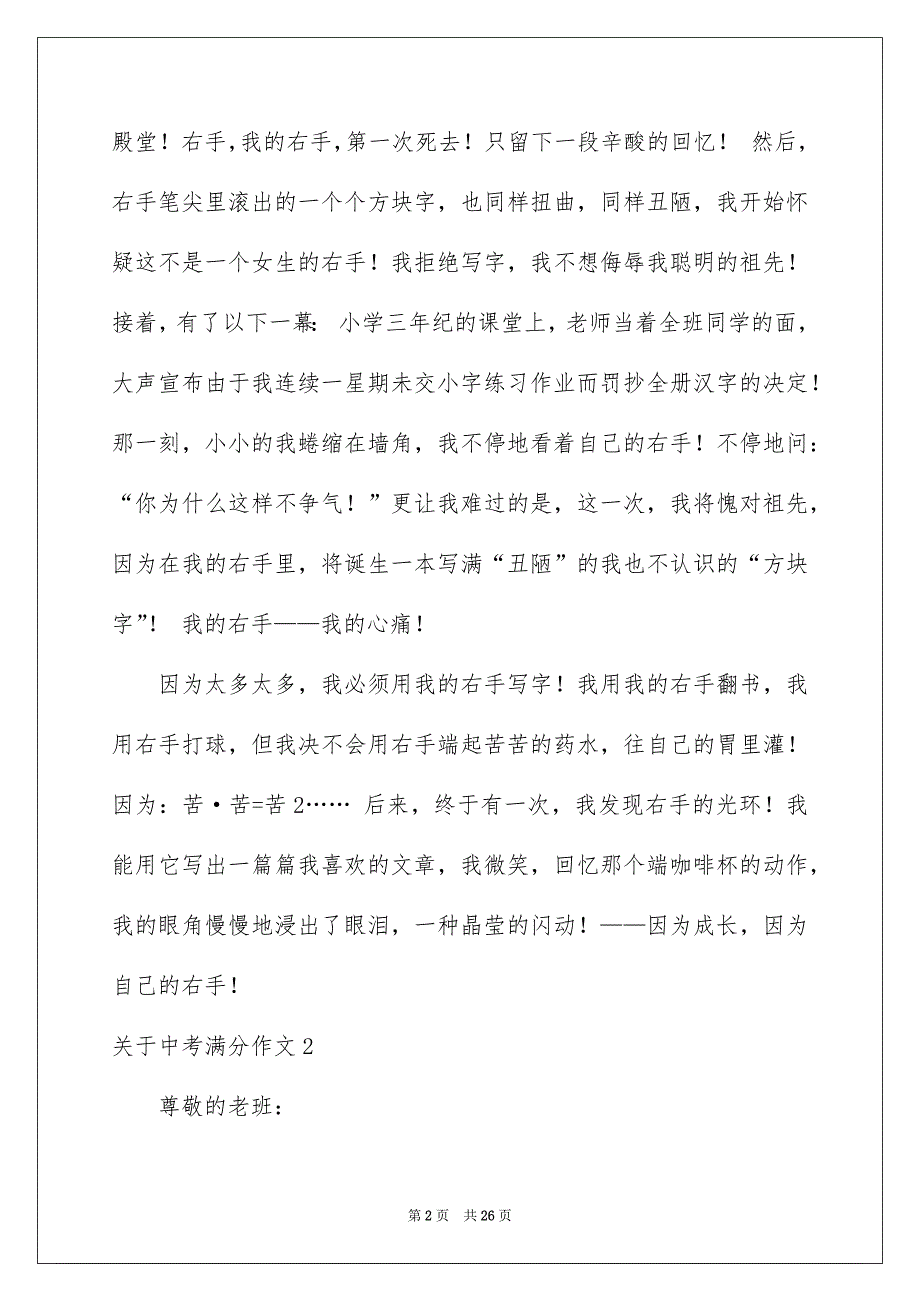 殿堂！右手，我的右手，第一次死去！只留下一段辛酸的回忆！ 然后，
右手笔尖里滚出的一个个方块字，也同样扭曲，同样丑陋，我开始怀
疑这不是一个女生的右手！我拒绝写字，我不想侮辱我聪明的祖先！
接着，有了以下一幕： 小学三年纪的课堂上，老师当着全班同学的面，
大声宣布由于我连续一星期未交小字练习作业而罚抄全册汉字的决定！
那一刻，小小的我蜷缩在墙角，我不停地看着自己的右手！不停地问：
“你为什么这样不争气！”更让我难过的是，这一次，我将愧对祖先，
因为在我的右手里，将诞生一本写满“丑陋”的我也不认识的“方块
字”！ 我的右手——我的心痛！
因为太多太多，我必须用我的右手写字！我用我的右手翻书，我
用右手打球，但我决不会用右手端起苦苦的药水，往自己的胃里灌！
因为：苦·苦=苦2…… 后来，终于有一次，我发现右手的光环！我
能用它写出一篇篇我喜欢的文章，我微笑，回忆那个端咖啡杯的动作，
我的眼角慢慢地浸出了眼泪，一种晶莹的闪动！——因为成长，因为
自己的右手！
关于中考满分作文2
尊敬的老班：
第2页 共26页